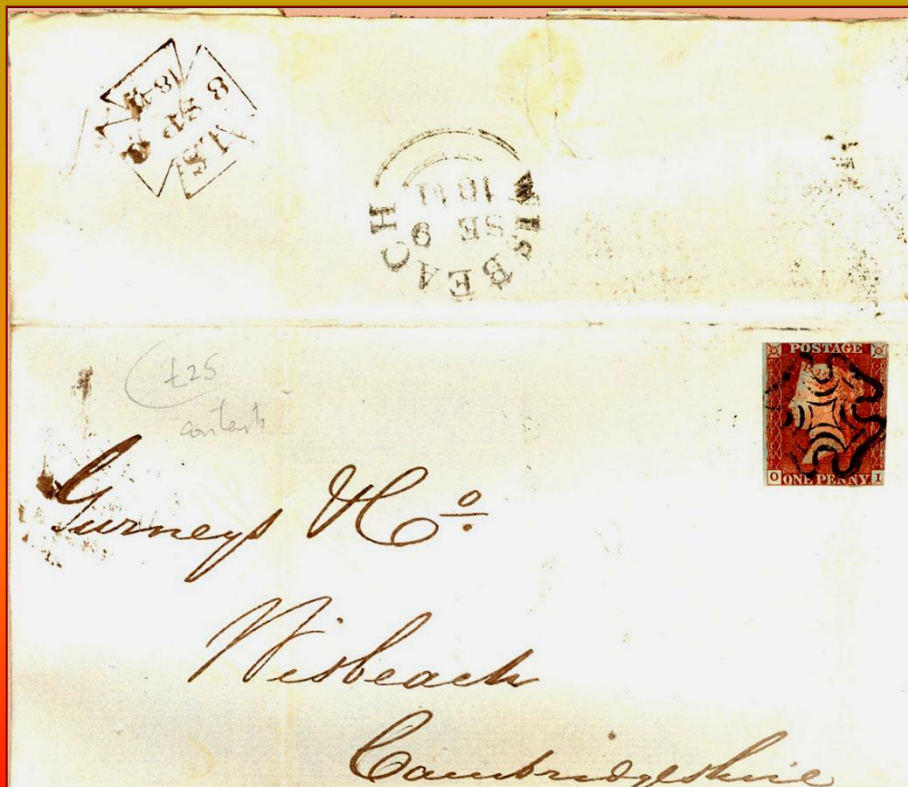 WISBEACH
SE 9
£25
contents
POSTAGE
O ONE PENNY I
Gurneys & Co
Wisbeach
Cambridgeshire